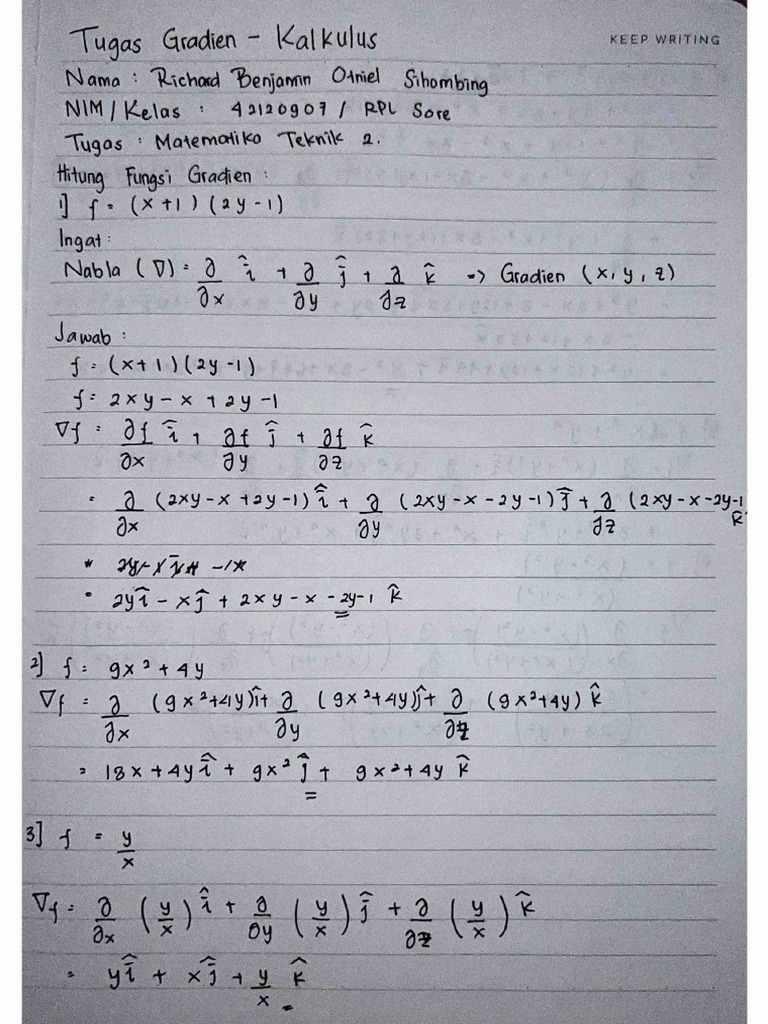 Tugas Gradien - Kalkulus
KEEP WRITING
Nama : Richard Benjamin Otniel Sihombing
NIM/Kelas : 42120907 / RPL Sore
Tugas : Matematika Teknik 2.
Hitung Fungsi Gradien :
1] f = (x+1)(2y-1)
Ingat :
Nabla (∇) = ∂/∂x î + ∂/∂y ĵ + ∂/∂z k̂ => Gradien (x, y, z)
Jawab :
f = (x+1)(2y-1)
f = 2xy - x + 2y - 1
∇f = ∂f/∂x î + ∂f/∂y ĵ + ∂f/∂z k̂
= ∂/∂x (2xy - x + 2y - 1) î + ∂/∂y (2xy - x - 2y - 1) ĵ + ∂/∂z (2xy - x - 2y - 1 k̂
= 2yî - xĵ + 2xy - x - 2y - 1 k̂
2] f = 9x² + 4y
∇f = ∂/∂x (9x² + 4y) î + ∂/∂y (9x² + 4y) ĵ + ∂/∂z (9x² + 4y) k̂
= 18x + 4y î + 9x² ĵ + 9x² + 4y k̂
3] f = y/x
∇f = ∂/∂x (y/x) î + ∂/∂y (y/x) ĵ + ∂/∂z (y/x) k̂
= yî + xĵ + y/x k̂